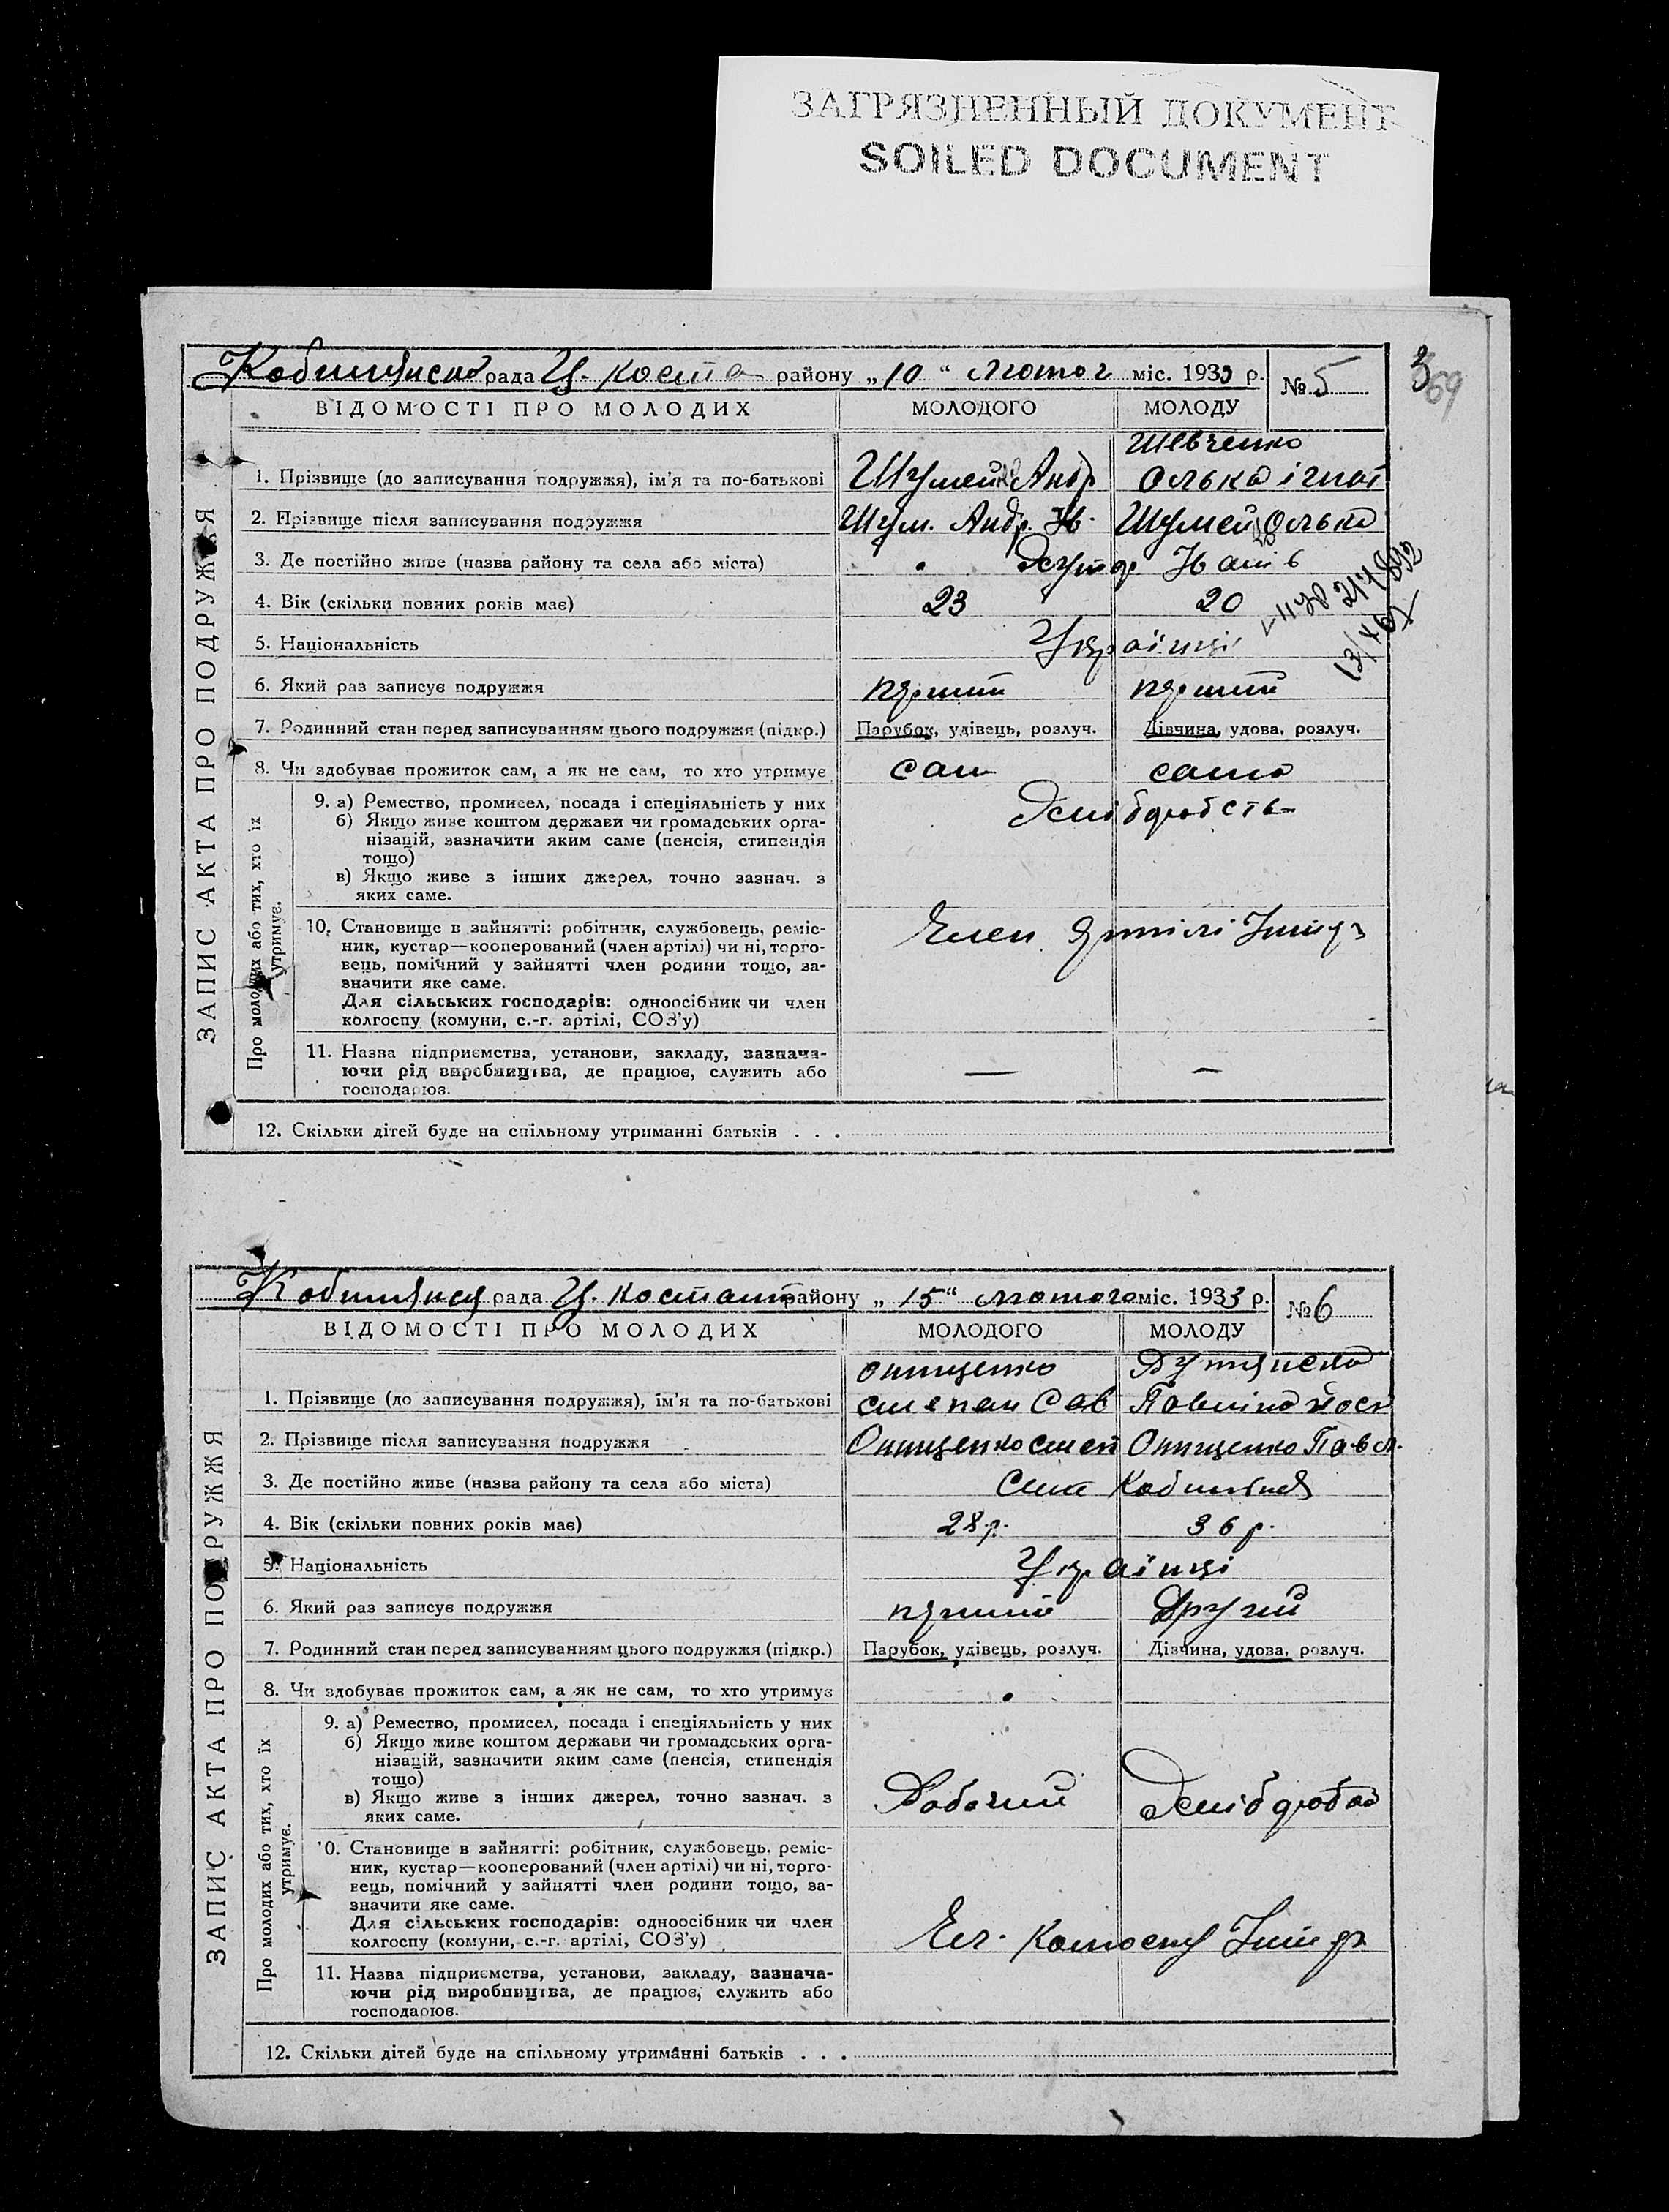 ЗАГРЯЗНЕННЫЙ ДОКУМЕНТ
SOILED DOCUMENT
рада Ч. Коста району „10“ Лютог міс. 1933 р. №5
369
ВІДОМОСТІ ПРО МОЛОДИХ МОЛОДОГО МОЛОДУ
ЗАПИС АКТА ПРО ПОДРУЖЖЯ
Шевченко
1. Прізвище (до записування подружжя), ім’я та по-батькові Шумей Андр Олька ігнат
2. Прізвище після записування подружжя Шум. Андр. Ів. Шумей Олька
3. Де постійно живе (назва району та села або міста) Хутор Іванів
4. Вік (скільки повних років має) 23 20
5. Національність Українці
6. Який раз записує подружжя перший перший
7. Родинний стан перед записуванням цього подружжя (підкр.) Парубок, удівець, розлуч. Дівчина, удова, розлуч.
8. Чи здобуває прожиток сам, а як не сам, то хто утримує сам сама
Про молодих або тих, хто їх утримує.
9. а) Ремество, промисел, посада і спеціяльність у них Хліборобств
б) Якщо живе коштом держави чи громадських орга-
нізацій, зазначити яким саме (пенсія, стипендія
тощо)
в) Якщо живе з інших джерел, точно зазнач. з
яких саме.
10. Становище в зайнятті: робітник, службовець, реміс-
ник, кустар—кооперований (член артілі) чи ні, торго-
вець, помічний у зайнятті член родини тощо, за-
значити яке саме.
Для сільських господарів: одноосібник чи член
колгоспу (комуни, с.-г. артілі, СОЗ’у)
Член Артілі
11. Назва підприємства, установи, закладу, зазнача-
ючи рід виробництва, де працює, служить або
господарює.
— —
12. Скільки дітей буде на спільному утриманні батьків . . .
рада Ч. Костант району „15“ Лютого міс. 1933 р. №6
ВІДОМОСТІ ПРО МОЛОДИХ МОЛОДОГО МОЛОДУ
ЗАПИС АКТА ПРО ПОДРУЖЖЯ
Онищенко
1. Прізвище (до записування подружжя), ім’я та по-батькові Степан Сав Павліна Йосп
2. Прізвище після записування подружжя Онищенко Степ Онищенко Павл.
3. Де постійно живе (назва району та села або міста)
4. Вік (скільки повних років має) 28 р. 36 р.
5. Національність Українці
6. Який раз записує подружжя перший Другий
7. Родинний стан перед записуванням цього подружжя (підкр.) Парубок, удівець, розлуч. Дівчина, удова, розлуч.
8. Чи здобуває прожиток сам, а як не сам, то хто утримує
Про молодих або тих, хто їх утримує.
9. а) Ремество, промисел, посада і спеціяльність у них
б) Якщо живе коштом держави чи громадських орга-
нізацій, зазначити яким саме (пенсія, стипендія
тощо)
в) Якщо живе з інших джерел, точно зазнач. з
яких саме.
Рабочий Хлібороб
10. Становище в зайнятті: робітник, службовець, реміс-
ник, кустар—кооперований (член артілі) чи ні, торго-
вець, помічний у зайнятті член родини тощо, за-
значити яке саме.
Для сільських господарів: одноосібник чи член
колгоспу (комуни, с.-г. артілі, СОЗ’у)
Чл. Колгоспу
11. Назва підприємства, установи, закладу, зазнача-
ючи рід виробництва, де працює, служить або
господарює.
12. Скільки дітей буде на спільному утриманні батьків . . .